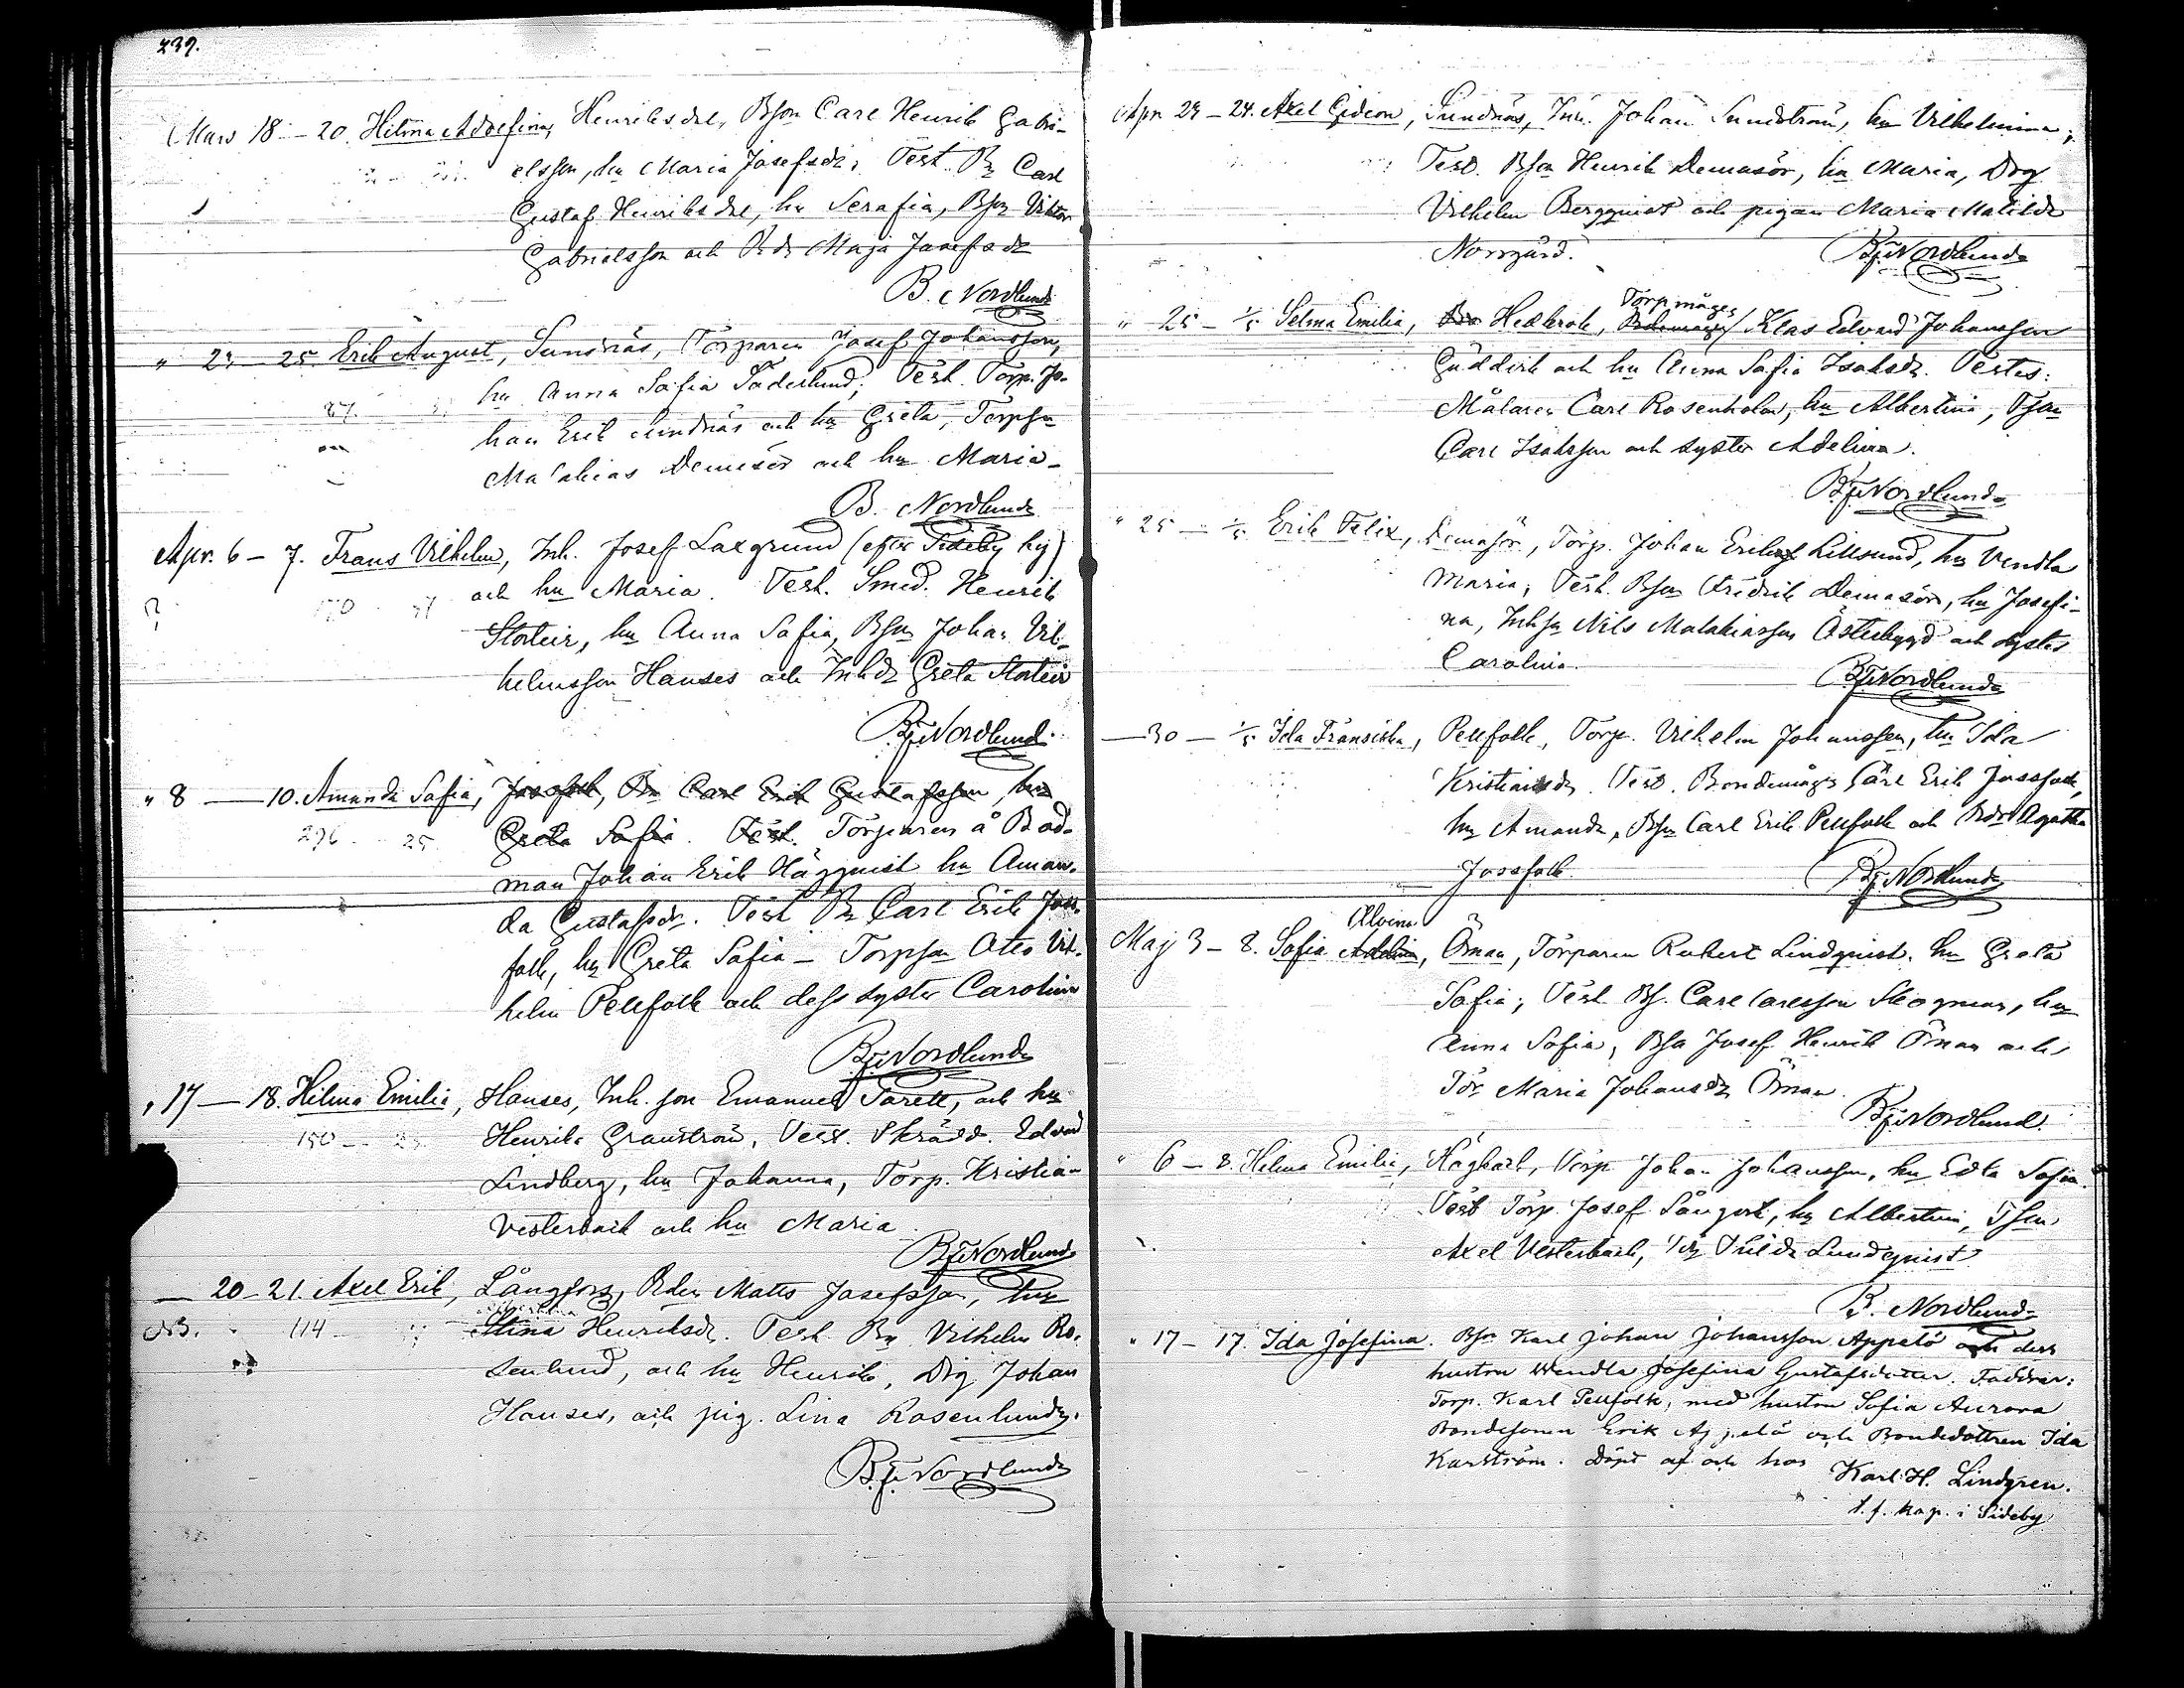 239.
Mars 18 - 20. Hilma Adolfina, Henriksdal, Bson Carl Henrik Gabri-
elsson, hu Maria Josefsdr. Test. Bn Carl
Gustaf Henriksdal, hu Serafia, Bson Viktor
Gabrielsson och Bdr Maja Josefsdr
B. Nordlund
" 23 - 25. Erik August, Sundnäs, Torparen Josef Johansson,
hu Anna Sofia Söderlund; Test. Torp. Jo-
han Erik Sundnäs och hu Greta, Torpson
Malakias Demasör och hu Maria -
B. Nordlund
Apr. 6 - 7. Frans Vilhelm, Inh. Josef Laxgrund (efter Sideby bg)
? 150 och hu Maria. Test. Smed. Henrik
Storteir, hu Anna Sofia, Bson Johan Vil-
helmsson Hanses och Inhdr Greta Storteir
B.F. Nordlund.
" 8 — 10. Amanda Sofia, Jossfolk, Bn Carl Erik Gustafsson, hu
296 25 Greta Sofia. Test. Torparen å Bod-
man Johan Erik Häggqvist hu Aman-
da Gustafsdr. Test Bn Carl Erik Joss-
folk, hu Greta Sofia - Torpson Otto Vil-
helm Pellfolk och dess syster Carolina
B.F. Nordlund
" 17 — 18. Hilma Emilia, Hanses, Inh. son Emanuel Parell, och hu
150 - 23 Henrika Granström, Test. Skrädd. Edvard
Lindberg, hu Johanna, Torp. Kristian
Vesterback och hu Maria.
B.F. Nordlund
— 20 - 21. Axel Erik, Långfors, Bden Matts Josefsson, hu
NB. 114 Stina Henriksdr. Test. Bn Vilhelm Ro-
senlund, och hu Henrika, Drg Johan
Hanses, och pig. Lina Rosenlund.
B.F. Nordlund
Apr 23 - 24. Axel Gideon, Sundnäs, Inh. Johan Sundström, hu Vilhelmina;
Test. Bson Henrik Demasör, hu Maria, Drg
Vilhelm Bergqvist och pigan Maria Matilda
Norrgård. B.F. Nordlund
Torpmågen
" 25 - 1/5 Selma Emilia, Hedkrok, Bdemågen Klas Edvard Johansson
Gäddisk och hu Anna Sofia Isaksdr. Testes:
Målaren Carl Rosenholm, hu Albertina, Tson
Carl Isaksson och syster Adelina.
B.F. Nordlund
" 25 - 1/5 Erik Felix, Demasör, Torp. Johan Eriksson Lillsund, hu Vendla
Maria; Test. Bson Fredrik Demasör, hu Josefi-
na, Inhson Nils Malakiasson Österbygd och syster
Carolina. B.F. Nordlund
— 30 - 1/5 Ida Fransiska, Pellfolk, Torp. Vilhelm Johansson, hu Ida
Kristiansdr. Test. Bondemågen Carl Erik Jossfolk,
hu Amanda, Bson Carl Erik Pellfolk och Bdr Agatha
Jossfolk. B.F. Nordlund
Alvina
Maj 3 - 8. Sofia Adelina, Öman, Torparen Robert Lindqvist. hu Greta
Sofia; Test. Bs. Carl Carlsson Skogman, hu
Anna Sofia, Bson Josef Henrik Öman och
Tdr Maria Johansdr Öman.
B.F. Nordlund.
" 6 - 8. Helma Emilia, Högback, Torp Johan Johansson, hu Edla Sofia.
Test Torp. Josef Långvik, hu Albertina, Tson
Axel Vesterback, Tdr Hilda Lundqvist.
B. Nordlund
" 17 - 17. Ida Josefina. Bsn Karl Johan Johansson Appelö och dess
hustru Wendla Josefina Gustafsdotter. Faddrar:
Torp. Karl Pellfolk, med hustru Sofia Aurora
Bondesonen Erik Appelö och Bondedottren Ida
Karström. Döpt af och hos Karl H. Lindgren.
t. f. kap. i Sideby